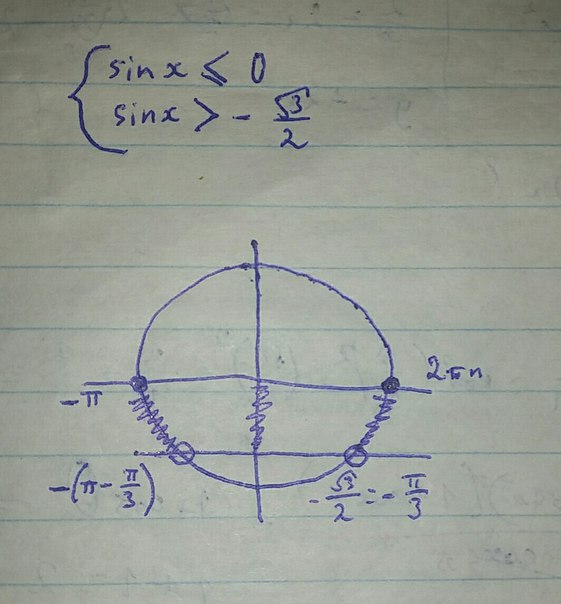 sinx ⩽ 0
sinx > - √3/2
2πn
-π
-(π - π/3)
-√3/2 = -π/3